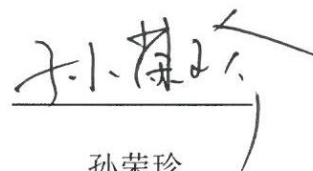 孙荣珍
孙荣珍